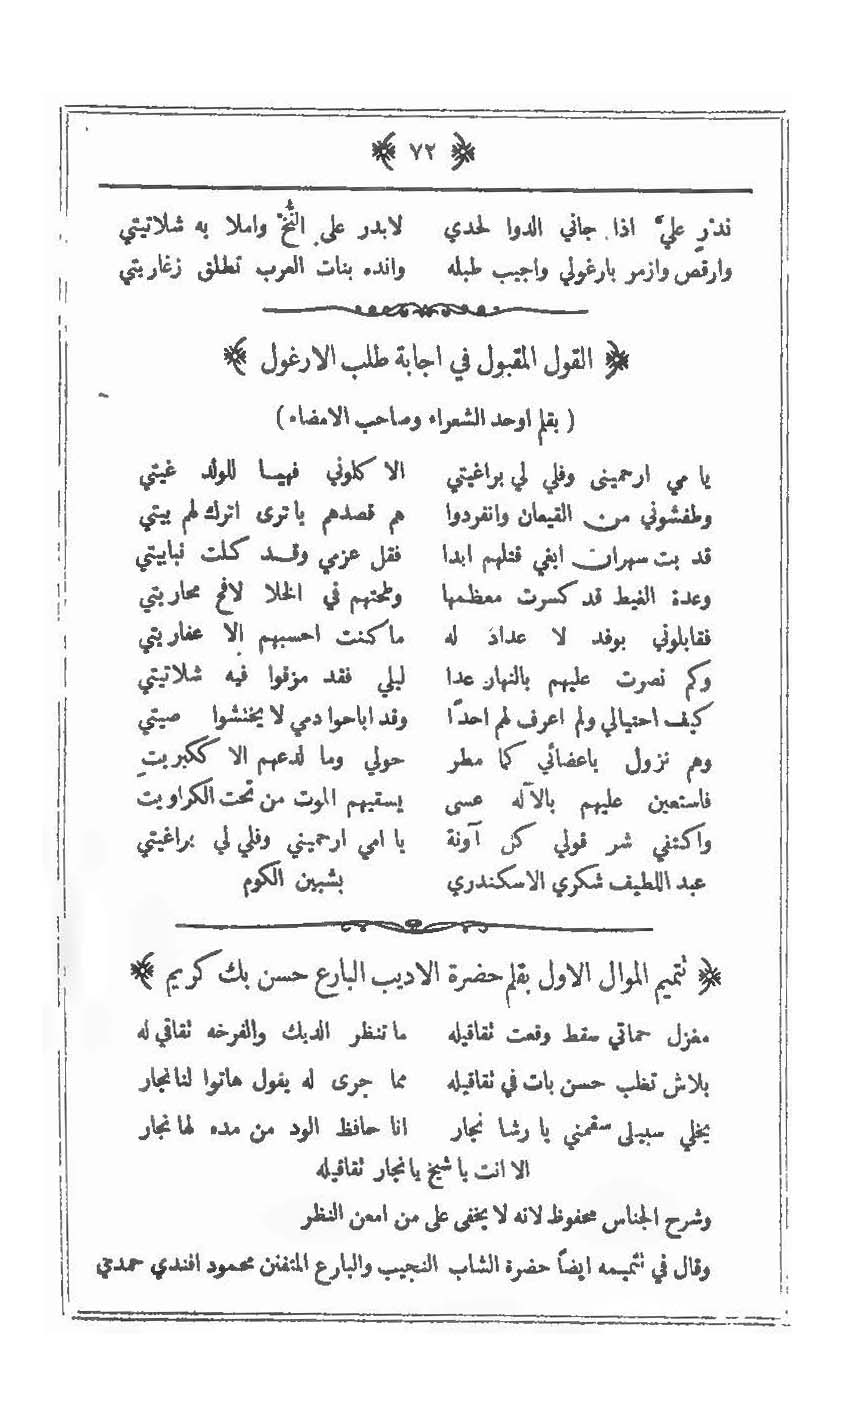 ﴿ ٧٢ ﴾
ندْرٍ عليَّ اذا جاني الدوا لحدي لابدر على النُّخ واملا به شلاتيتي
وارقص وازمر بارغولي واجيب طبله وانده بنات العرب تطلق زغاريتي
﴿ القول المقبول في اجابة طلب الارغول ﴾
( بقلم اوحد الشعراء وصاحب الامضاء )
يا مي ارحميني وفلي لي براغيتي الا كلوني فهيا للولد غيتي
وطفشوني من القيعان وانفردوا هم قصدهم ياترى اترك لهم بيتي
قد بت سهران ابغي قتلهم ابدا فقل عزمي وقد كلت نبابيتي
وعدة الغيط قد كسرت معظمها وطحتهم في الخلا لافح محاريتي
فقابلوني بوفد لا عداد له ما كنت احسبهم الا عفاريتي
وكم نصرت عليهم بالنهار عدا ليلي فقد مزقوا فيه شلاتيتي
كيف احتيالي ولم اعرف لهم احداً وقد اباحوا دمي لا يختشوا صيتي
وهم نزول باعضائي كما مطر حولي وما لدعهم الا ككبريتِ
فاستعين عليهم بالآله عسى يسقيهم الموت من تحت الكراويت
واكتفي شر قولي كل آونة يا امي ارحميني وفلي لي براغيتي
عبد اللطيف شكري الاسكندري بشبين الكوم
﴿ تتميم الموال الاول بقلم حضرة الاديب البارع حسن بك كريم ﴾
مغزل حماتي سقط وقعت ثقاقيله ما تنظر الديك والفرخه ثقاقي له
بلاش تغلب حسن بات في ثقاقيله مما جرى له يقول هاتوا لنا نجار
يخلي سبيلى سقمني يا رشا نجار انا حافظ الود من مده لها نجار
الا انت يا شيخ يا نجار ثقاقيله
وشرح الجناس محفوظ لانه لا يخفى على من امعن النظر
وقال في تتميمه ايضاً حضرة الشاب النجيب والبارع المتفنن محمود افندي حمدي